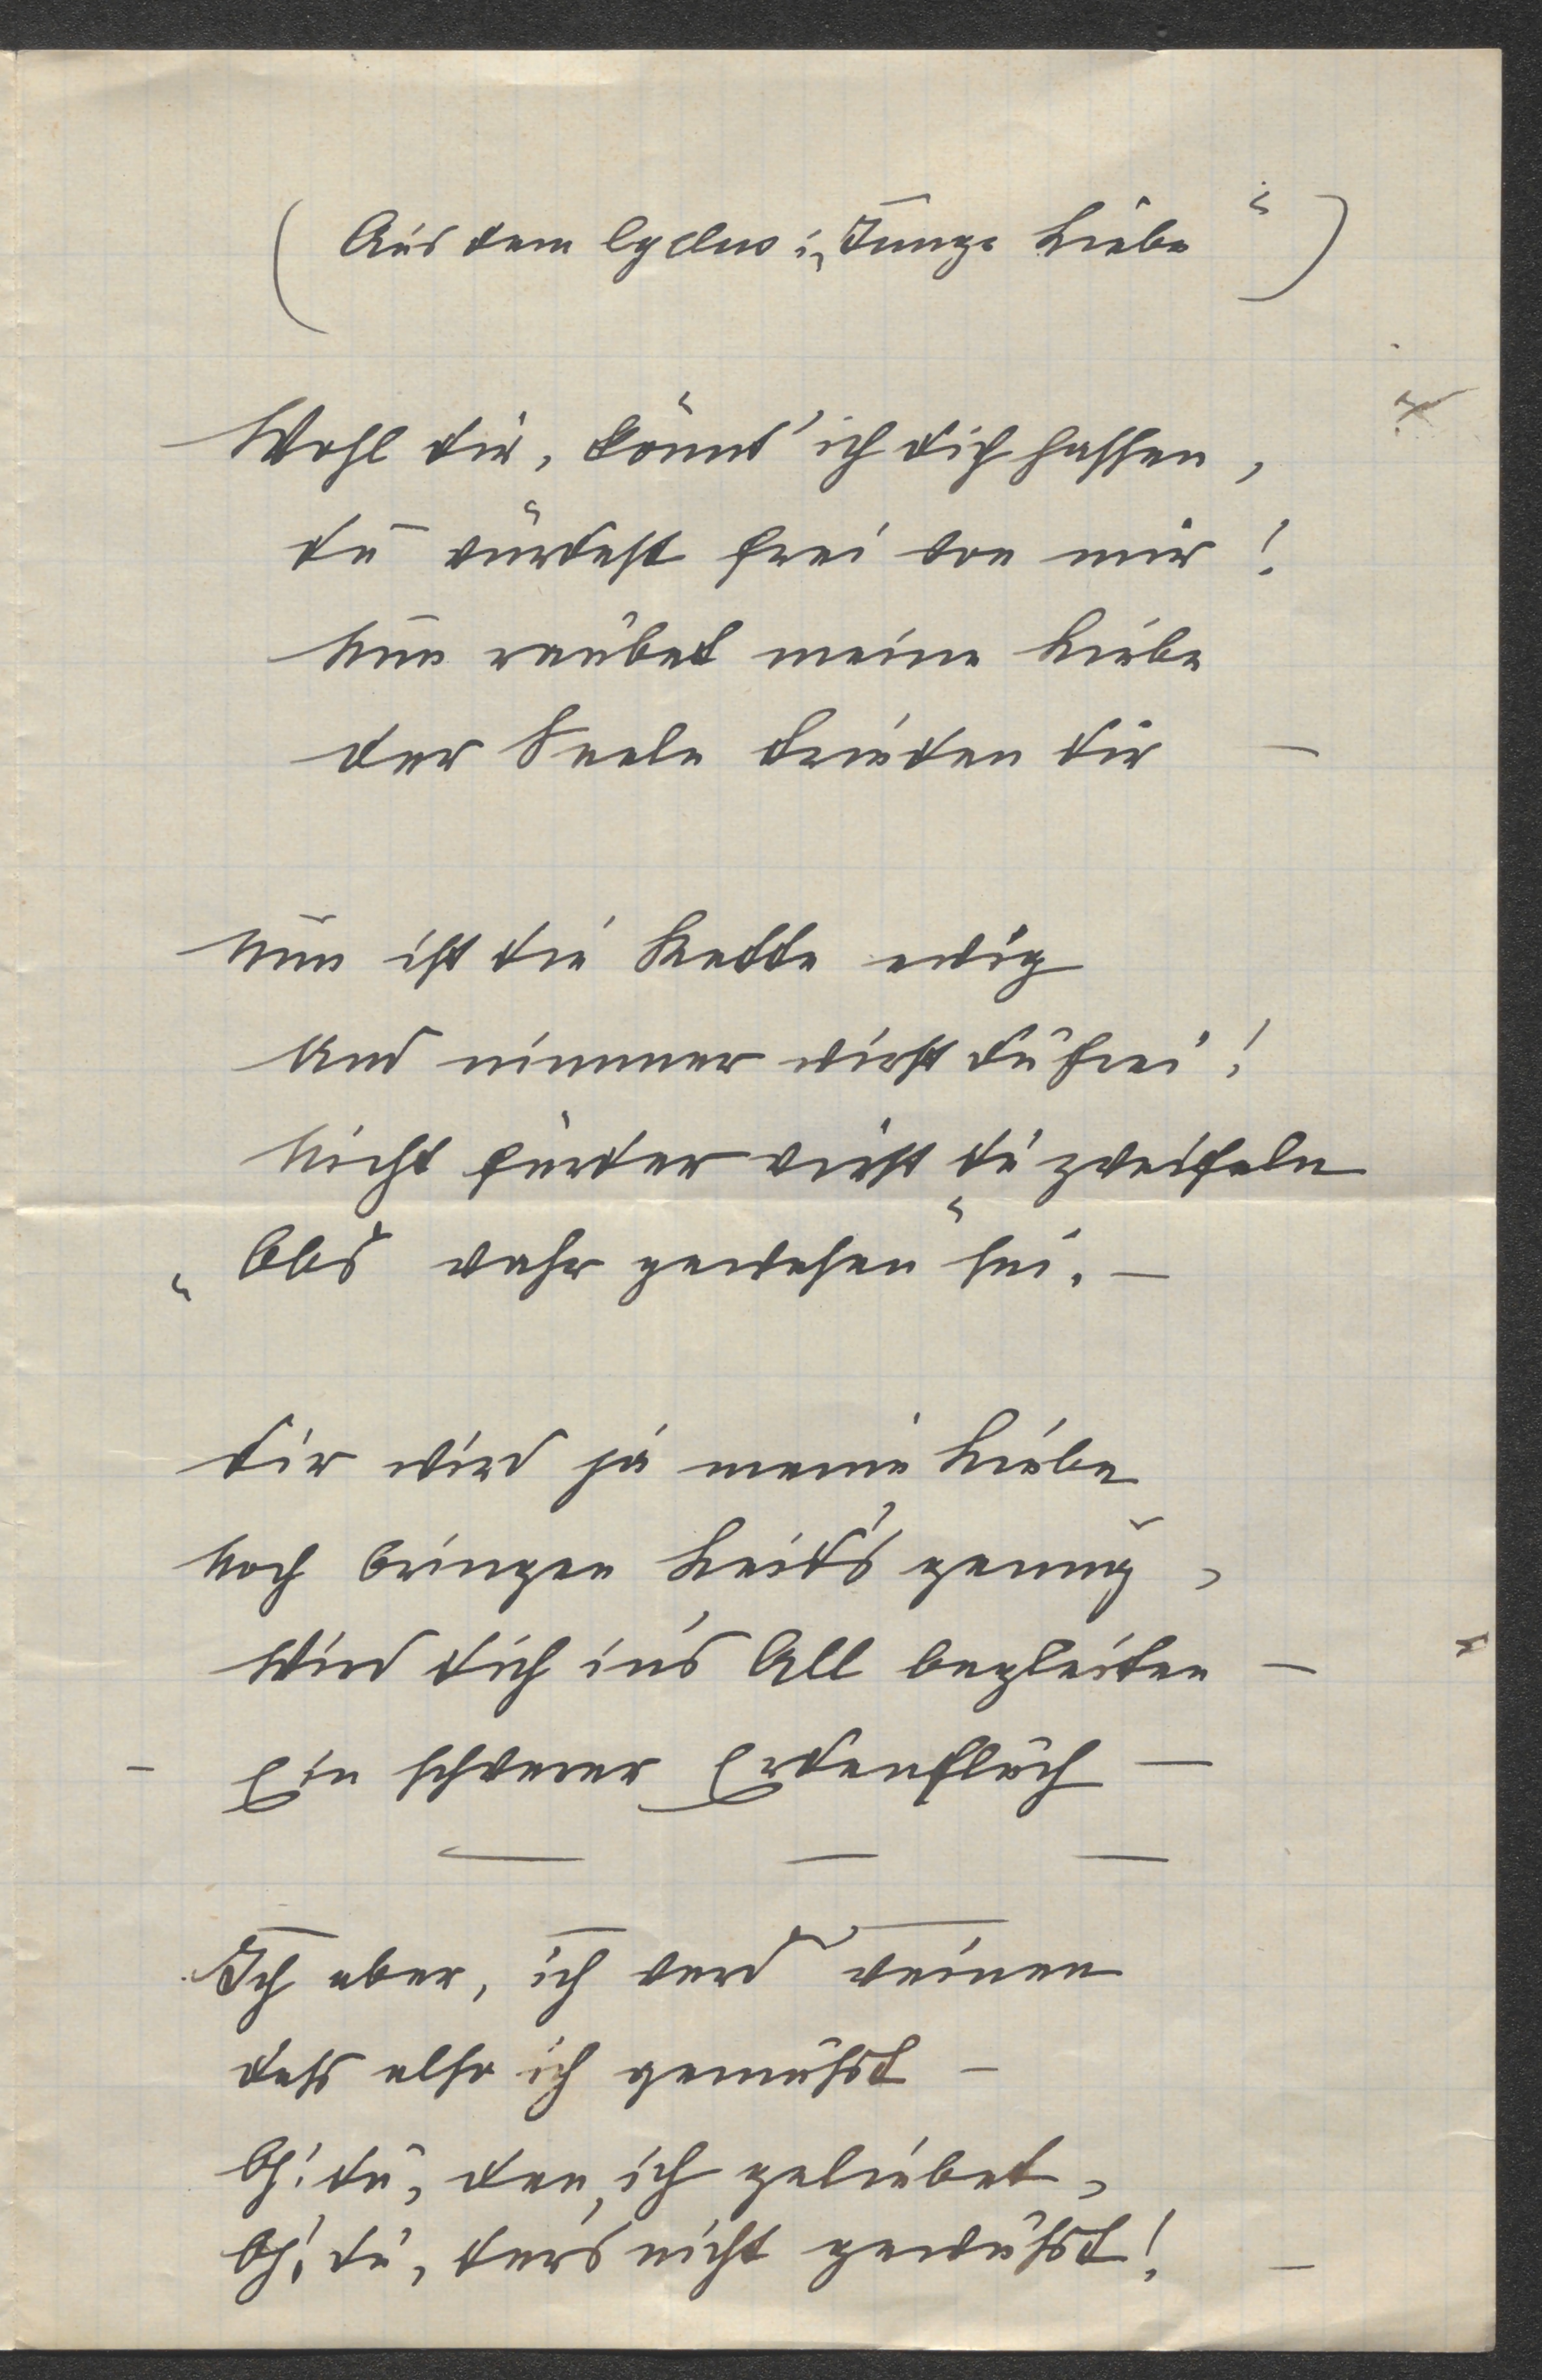 (Aus dem Cyclus: „Junge Liebe“)
Wohl dir, könnt' ich dich hassen,
du würdest frei von mir!
Nun raubet meine Liebe
der Seele Frieden dir –
Nun ist die Kette ewig
Und nimmer wirst du frei!
Nicht fürder wirst du zweifeln
„Obs wahr gewesen“ sei. –
Dir wird ja meine Liebe
Noch bringen Leid's genug,
Wird dich in's All begleiten –
– Ein schwerer Erdenfluch –
— — —
Ich aber, ich werd weinen
dass also ich gemusst –
Oh! du, den ich geliebet,
Oh! du, der's nicht gewusst! –